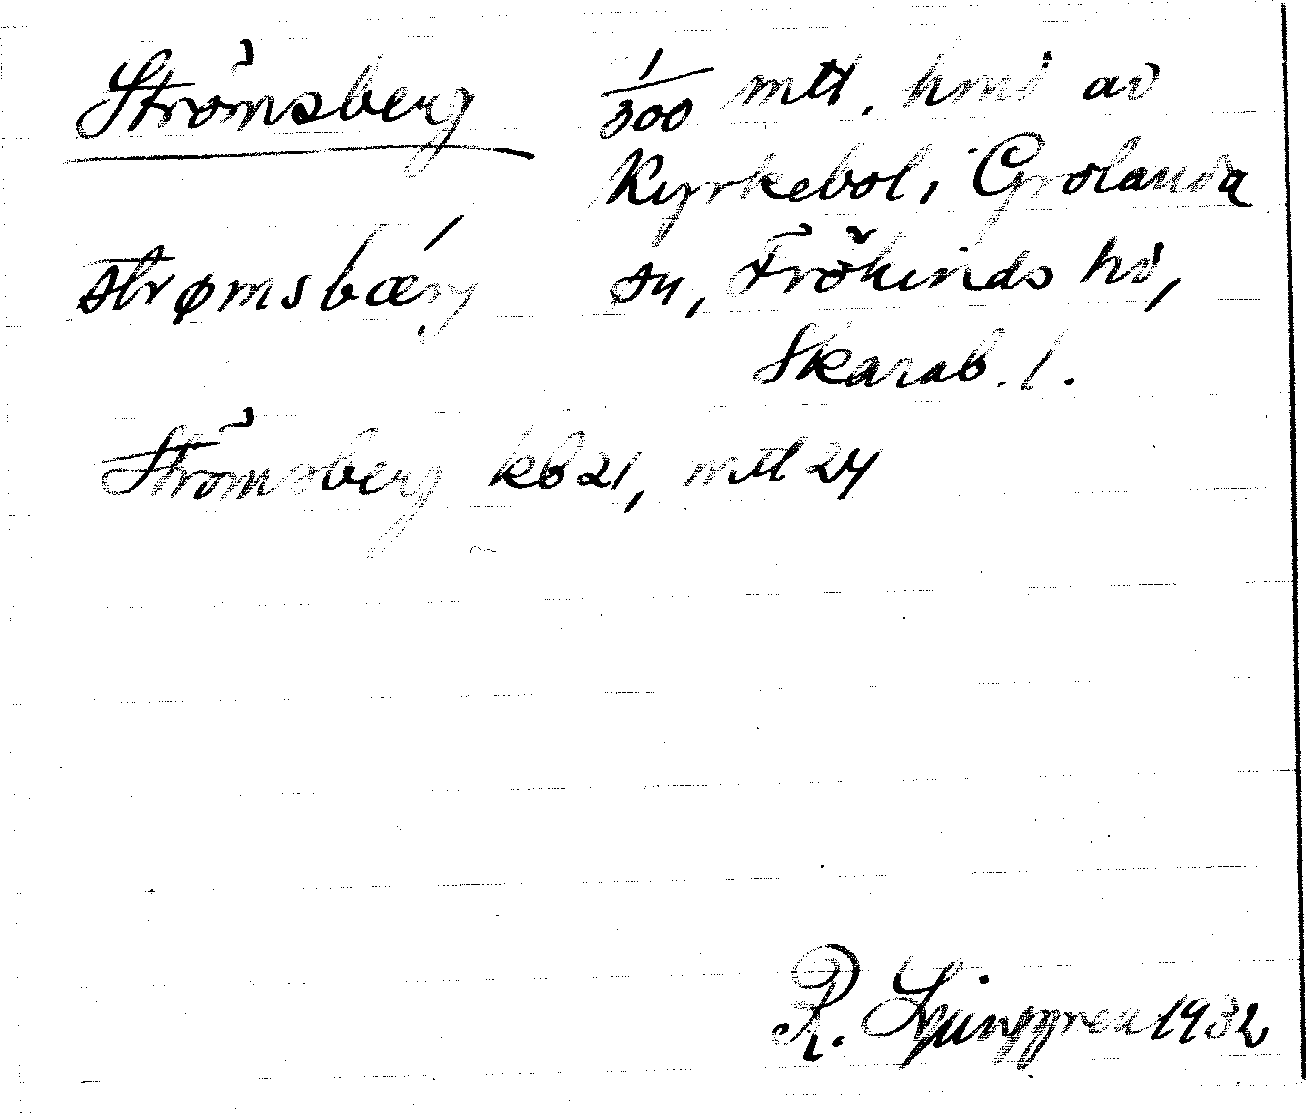 Strömsberg 1/300 mtl. hmd av
Kyrkebol, Grolanda
strømsbæ´rj sn, Frökinds hd,
Skarab. l.
Strömsberg kb 21, mtl 24
R. Ljunggren 1932